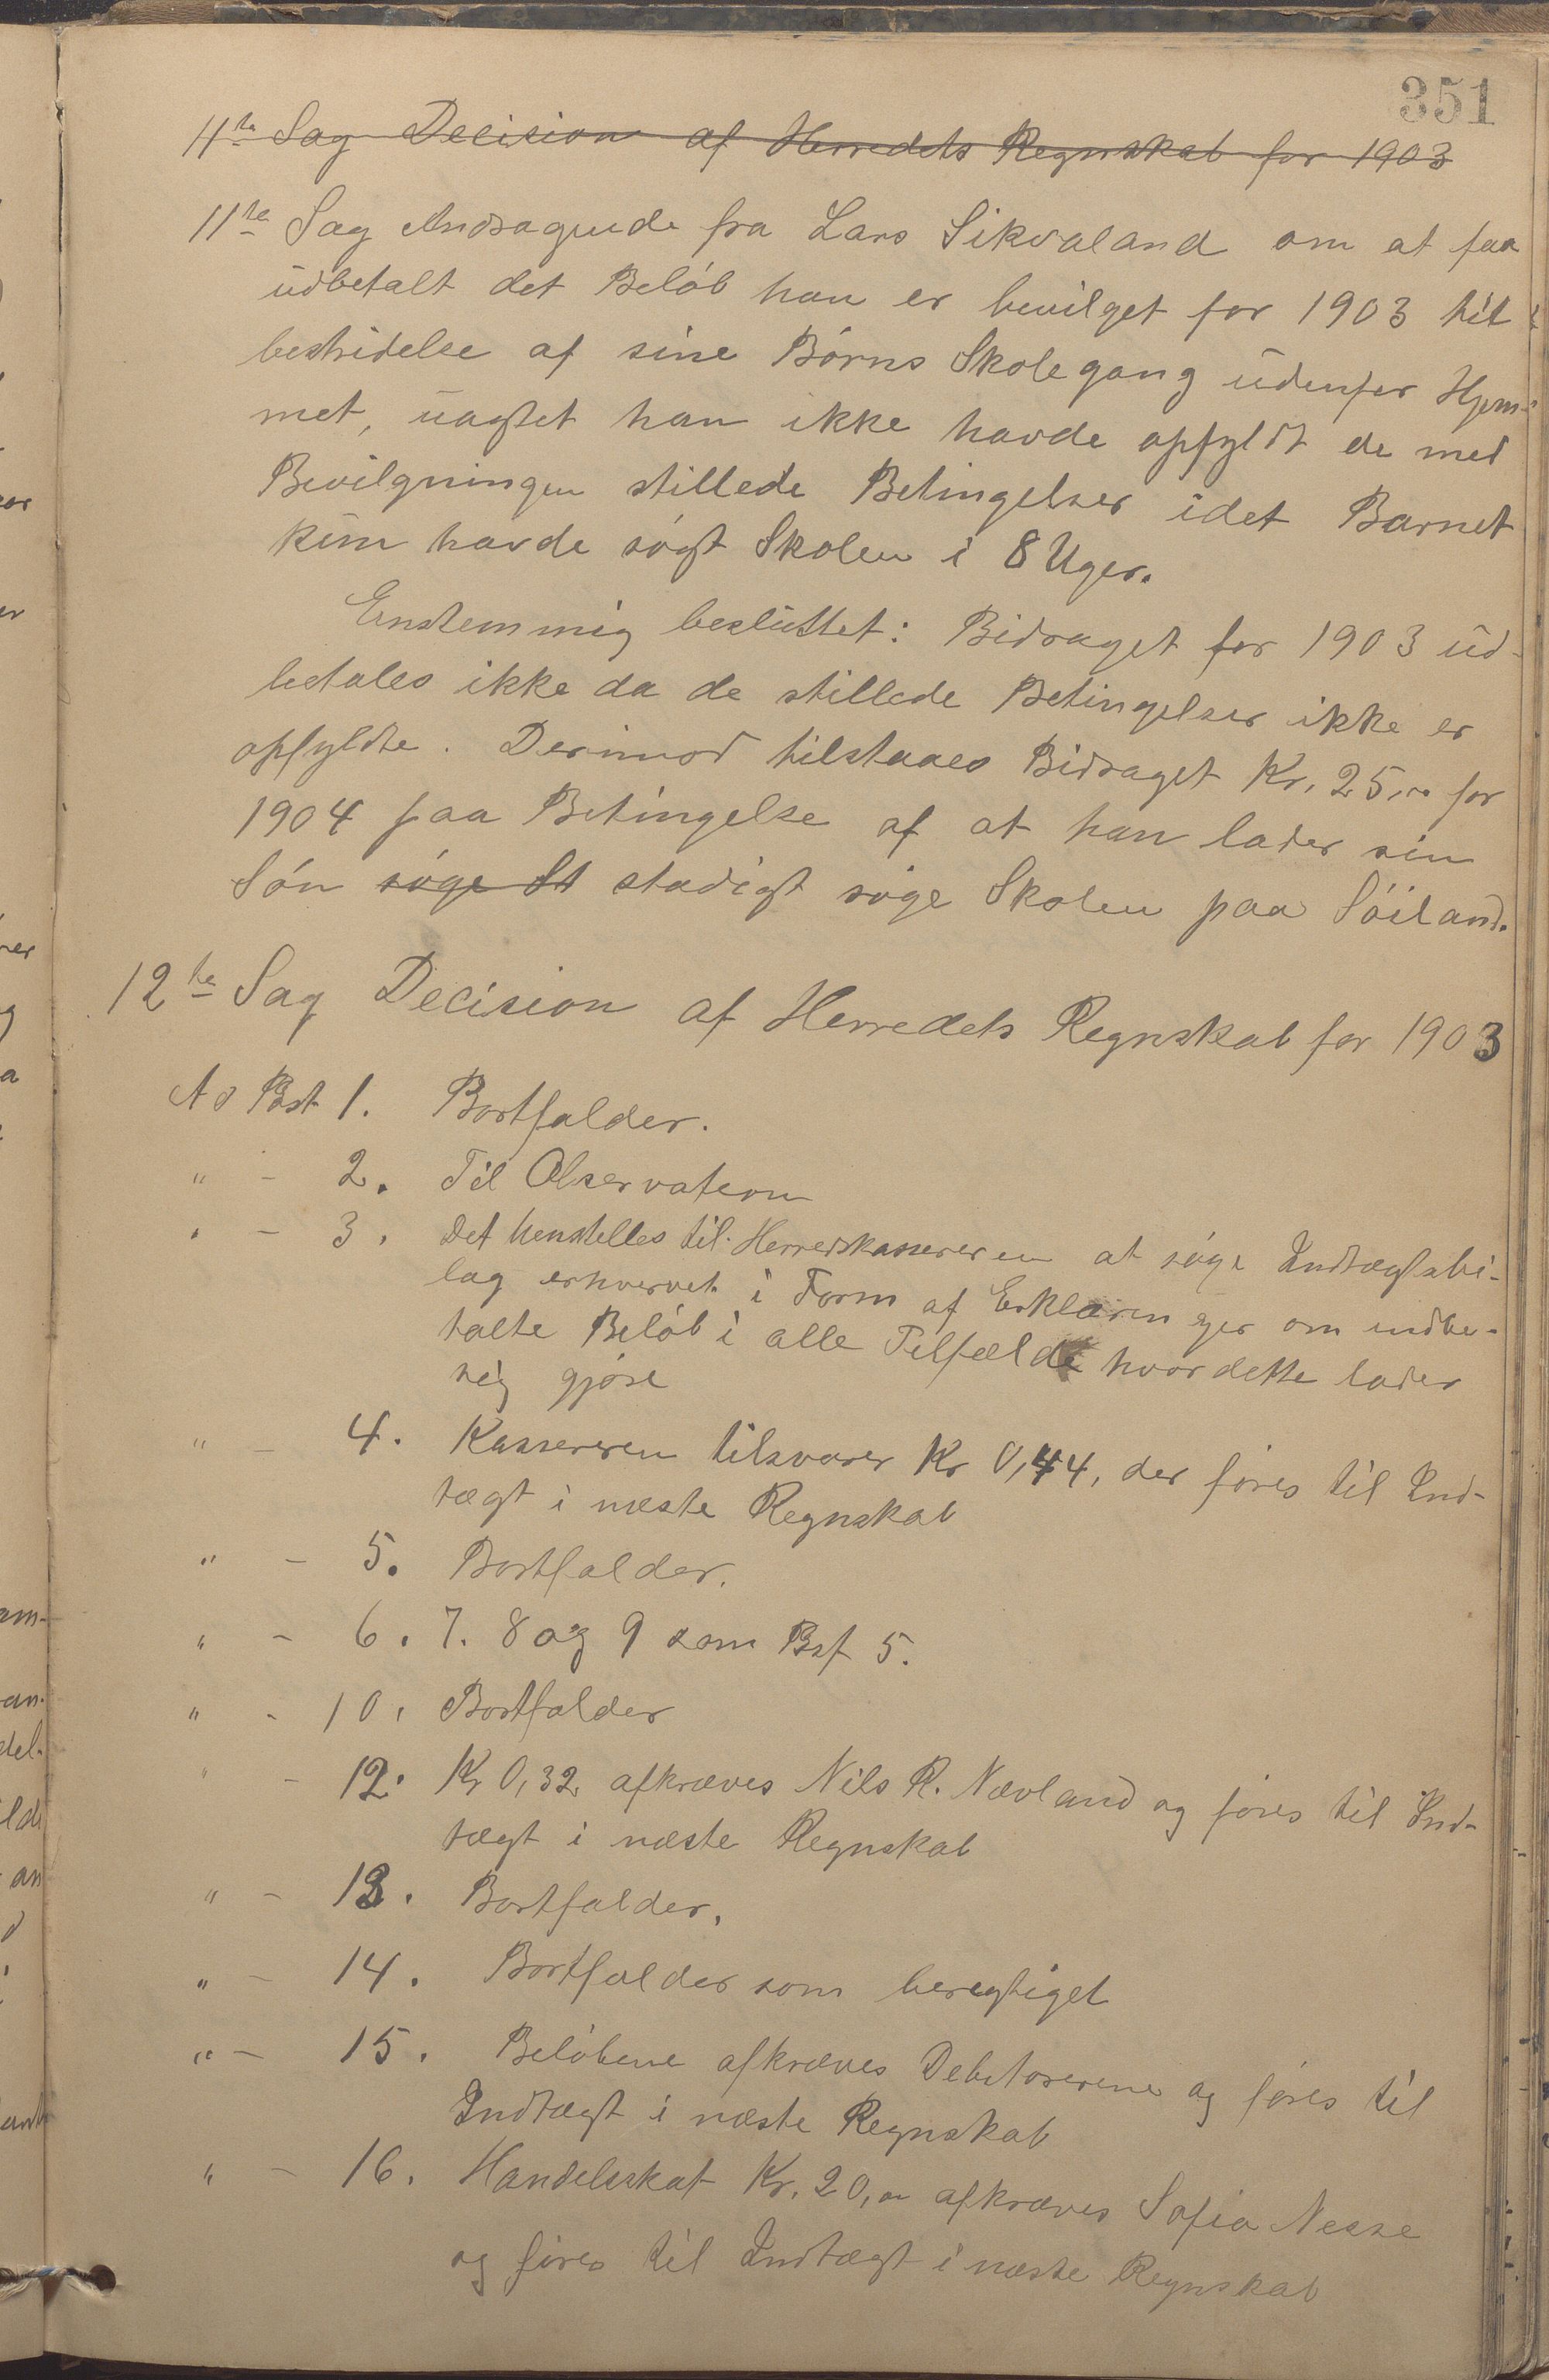 351
11te Sag Decision af Herredets Regnskab for 1903
11te Sag Andragende fra Lars Sikvaland om at faa
udbetalt det Beløb han er bevilget for 1903 til
bestridelse af sine Børns Skolegang udenfor Hjem-
met, uagtet han ikke havde opfyldt de med
Bevilgningen stillede Betingelser idet Barnet
kun havde søgt Skolen i 8 Uger.
Enstemmig besluttet: Bidraget for 1903 ud-
betales ikke da de stillede Betingelser ikke er
opfyldte. Derimod tilstaaes Bidraget Kr. 25,00 for
1904 paa Betingelse af at han lader sin
Søn søge St stadigt søge Skolen paa Söiland.
12te Sag Decision af Herredets Regnskab for 1903
Ad Post 1. Bortfalder.
" - 2. Til Observation
" - 3. Det henstilles til Herredskassereren at søge Indtægtsbi-
lag erhvervet i Form af Erklæringer om indbe-
talte Beløb i alle Tilfælde hvor dette lader
sig gjøre
" - 4. Kassereren tilsvarer Kr 0,44, der føres til Ind-
tægt i næste Regnskab
" - 5. Bortfalder.
" - 6. 7. 8 og 9 som Post 5.
" - 10. Bortfalder
" - 12. Kr 0,32 afkræves Nils R. Nævland og føres til Ind-
tægt i næste Regnskab
" - 13. Bortfalder.
" - 14. Bortfalder som beregtiget
" - 15. Beløbene afkræves Debitorerene og føres til
Indtægt i næste Regnskab
" - 16. Handelsskat Kr. 20,00 afkræves Sofia Nesse
og føres til Indtægt i næste Regnskab